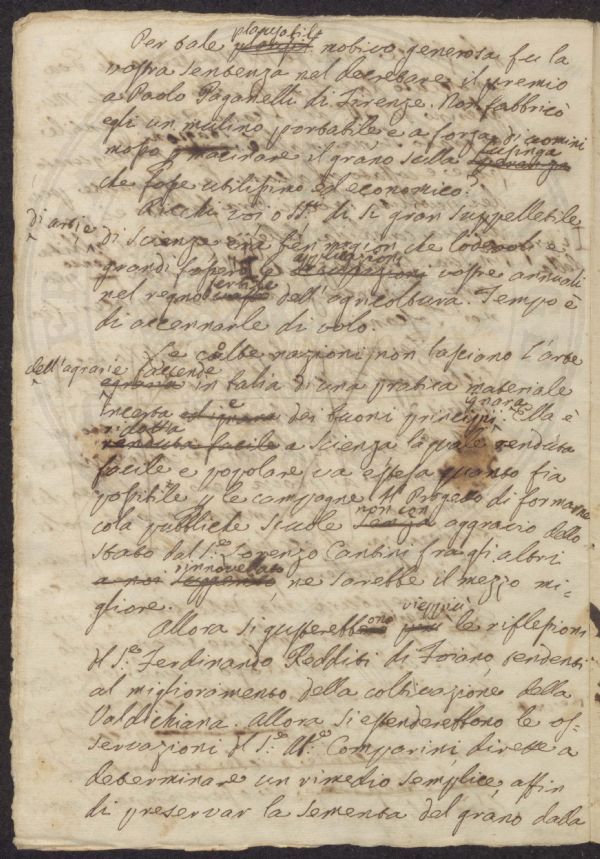 plausibile
Per tale motivo generosa fu la
vostra sentenza nel decretare il premio
a Paolo Paganelli di Firenze. Non fabbricò
egli un mulino portabile e a forza di uomini
mosso p macinare il grano sulla lusinga
che fosse utilissimo ed economico?
Ricchi voi o SS.ri di sì gran suppelletile
di arti e
di scienze ben
ragion che lodevoli e
grandi sapere le applicazioni vostre annuali
nel regno fertile dell'agricoltura. Tempo è
di accennarle di volo.
Le colte nazioni non lasciano l'arte
dell'agrarie faccende
agraria in balia di una pratica materiale
incerta e ignara dei buoni principii. Ella è
ridotta
renduta facile a scienza la quale renduta
facile e popolare va estesa quanto sia
possibile p le campagne. Il Progetto di formarne
cola pubbliche scuole non con aggravio dello
Stato del S.e Lorenzo Cantini fra gli altri
a noi innovellato, ne sarebbe il mezzo mi-
gliore.
Allora si gusterebbono vieppiù le riflessioni
del S.e Ferdinando Redditi di Foiano, tendenti
al miglioramento della coltivazione della
Valdichiana. Allora si estenderebbono le os-
servazioni del S.e Comparini, dirette a
determinare un rimedio semplice, affin
di preservar la sementa del grano dalla